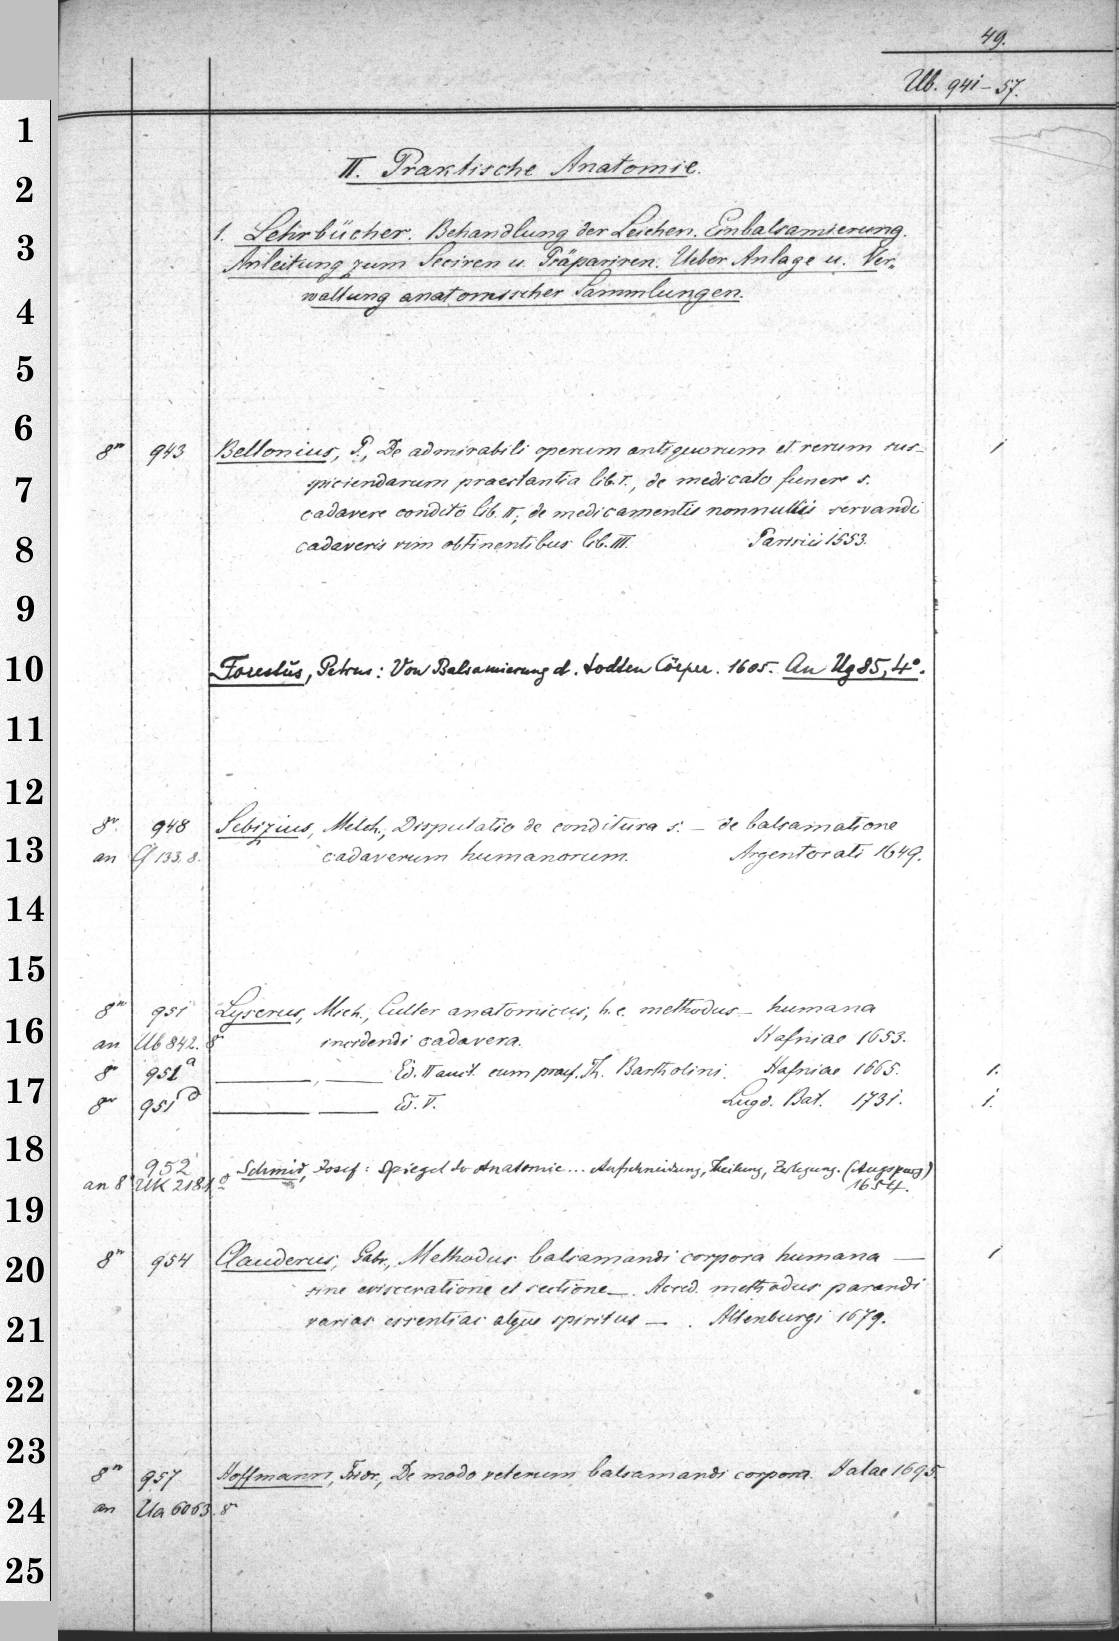 49.
Ub. 941-57.
1
II. Praktische Anatomie.
2
1. Lehrbücher. Behandlung der Leichen. Einbalsamierung.
3
Anleitung zum Seciren u. Präpariren. Ueber Anlage u. Ver-
waltung anatomischer Sammlungen.
4
5
6
8° 943 Bellonius, P., De admirabili operum antiquorum et rerum sus- 1
7
piciendarum praestantia lib. I., de medicato funere s.
cadavere condito lib. II., de medicamentis nonnullis servandi
8
cadaveris vim obtinentibus lib. III. Parisiis 1553.
9
10
Forestus, Petrus: Von Balsamierung d. todten Cörper. 1605. An Ug 85, 4°.
11
12
8° 948 Sebizius, Melch., Disputatio de conditura s. — de balsamatione
13
an 133. 8. cadaverum humanorum. Argentorati 1649.
14
15
8° 951 Lyserus, Mich., Culter anatomicus, h. e. methodus — humana
16
an Ub 842. 8° incidendi cadavera. Hafniae 1653.
8° 951a ———, —— Ed. II auct. cum praef. Th. Bartholini. Hafniae 1665. 1.
17
8° 951d ——— —— Ed. V. Lugd. Bat. 1731. 1.
18
952 Schmid, Josef: Spiegel der Anatomie... Aufschneidung, Theilung, Zerlegung. (Augspurg)
an 8° UK 2181 1654.
19
8° 954 Clauderus, Gabr., Methodus balsamandi corpora humana — 1
20
sine evisceratione et sectione —. Acced. methodus parandi
21
varias essentias atque spiritus — . Altenburgi 1679.
22
23
8° 957 Hoffmann, Frdr., De modo veterum balsamandi corpora. Halae 1695.
24
an Ua 6063. 8°
25